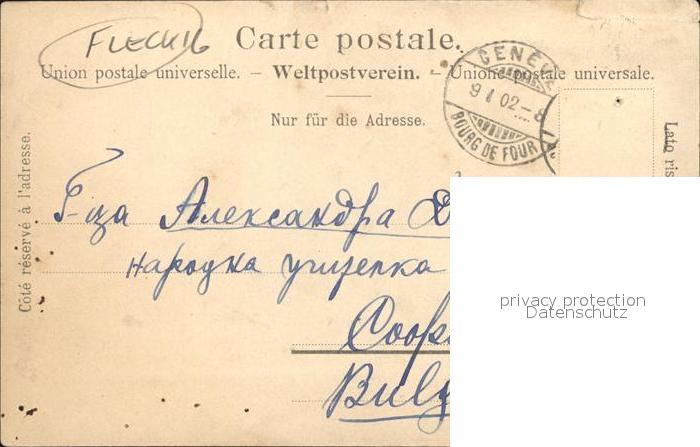 FLECKIG
Carte postale.
Union postale universelle. – Weltpostverein. – Unione postale universale.
Nur für die Adresse.
GENÈVE
9 I 02 – 8
BOURG DE FOUR
Côté réservé à l'adresse.
Lato ris
Г-ца Александра Д
народна учителка
Соф
Bulg
privacy protection
Datenschutz